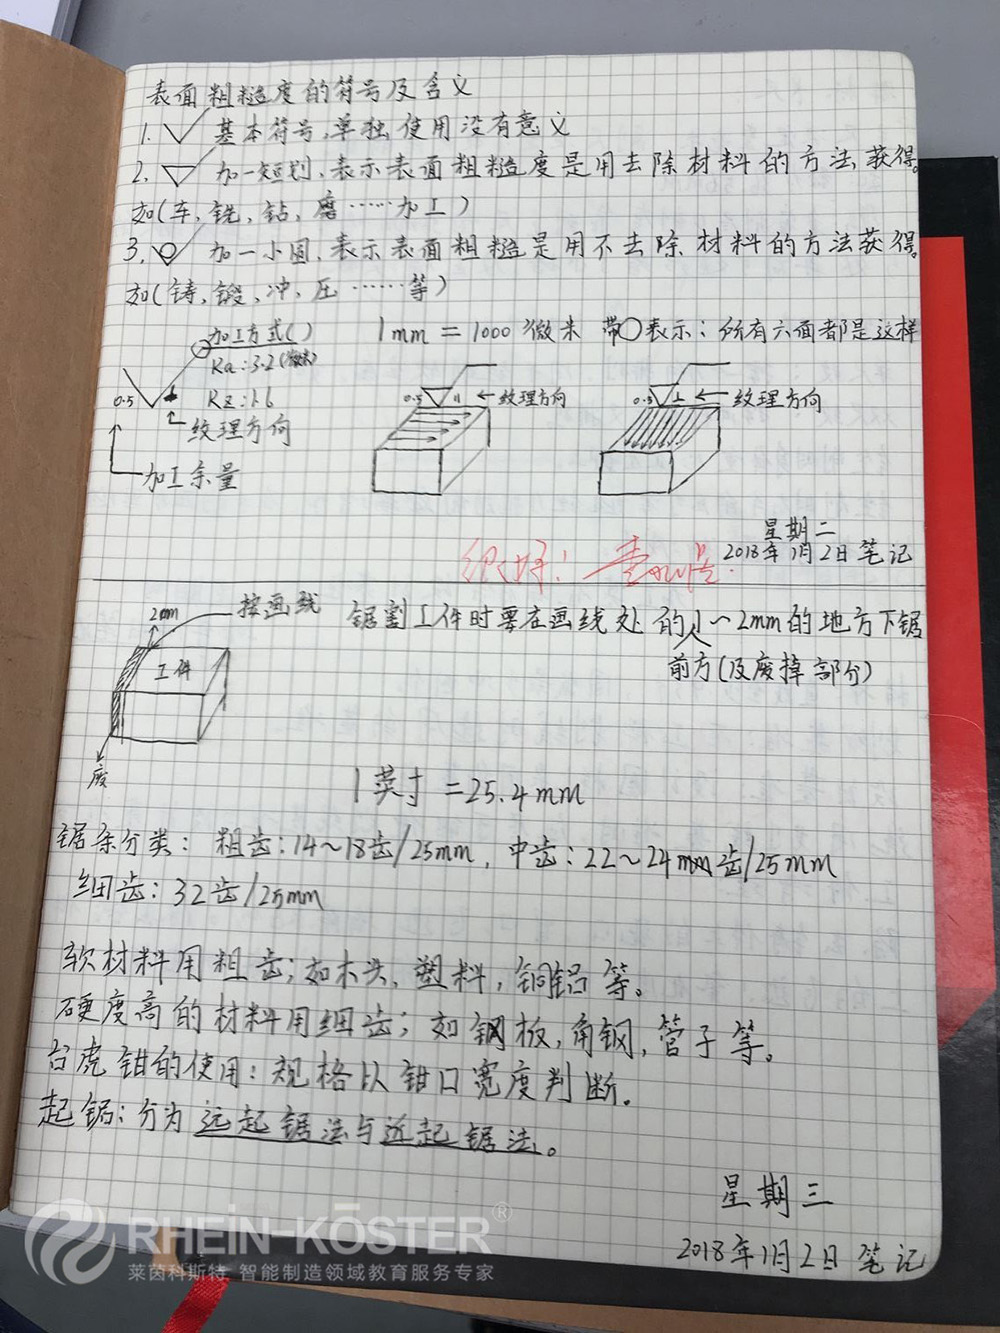 表面粗糙度的符号及含义
1. 基本符号,单独使用没有意义
2. 加一短划,表示表面粗糙度是用去除材料的方法获得。
如(车,铣,钻,磨……加工)
3. 加一小圆,表示表面粗糙是用不去除材料的方法获得。
如(铸,锻,冲,压……等)
加工方式( )
Ra:3.2(微米)
Rz:1.6
0.5
纹理方向
加工余量
1mm = 1000微米 带○表示:所有六面都是这样
0.5 = ←纹理方向
0.5 ⊥ ←纹理方向
星期二
2018年1月2日笔记
很好!
2mm
按画线
工件
废
锯割工件时要在画线处的1~2mm的地方下锯
前方(及废掉部分)
1英寸=25.4mm
锯条分类: 粗齿:14~18齿/25mm, 中齿:22~24齿/25mm
细齿:32齿/25mm
软材料用粗齿;如木头,塑料,铜铝等。
硬度高的材料用细齿;如钢板,角钢,管子等。
台虎钳的使用:规格以钳口宽度判断.
起锯:分为远起锯法与近起锯法。
星期三
2018年1月2日笔记
RHEIN-KÖSTER®
莱茵科斯特 智能制造领域教育服务专家